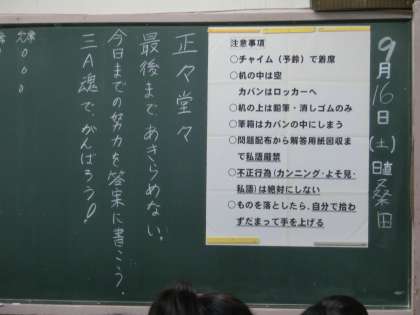 9月16日(土)日直 桑田
注意事項
○チャイム（予鈴）で着席
○机の中は空
カバンはロッカーへ
○机の上は鉛筆・消しゴムのみ
○筆箱はカバンの中にしまう
○問題配布から解答用紙回収ま
で私語厳禁
○不正行為(カンニング・よそ見・
私語)は絶対にしない
○ものを落としたら、自分で拾わ
ずだまって手を上げる
正々堂々
最後まで、あきらめない。
今日までの努力を答案に書こう。
三A魂で、がんばろう!
欠席